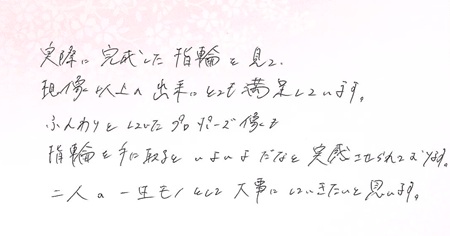 実際に完成した指輪を見て、
現像以上の出来にとても満足しています。
ふんわりとしていたプロポーズ像も
指輪を手に取るといよいよだなと実感させられております。
二人の一生モノとして大事にしていきたいと思います。